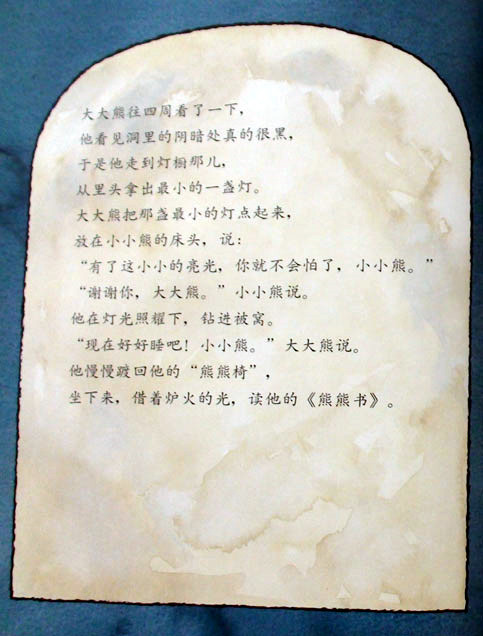 大大熊往四周看了一下，
他看见洞里的阴暗处真的很黑，
于是他走到灯橱那儿，
从里头拿出最小的一盏灯。
大大熊把那盏最小的灯点起来，
放在小小熊的床头，说：
“有了这小小的亮光，你就不会怕了，小小熊。”
“谢谢你，大大熊。”小小熊说。
他在灯光照耀下，钻进被窝。
“现在好好睡吧！小小熊。”大大熊说。
他慢慢踱回他的“熊熊椅”，
坐下来，借着炉火的光，读他的《熊熊书》。